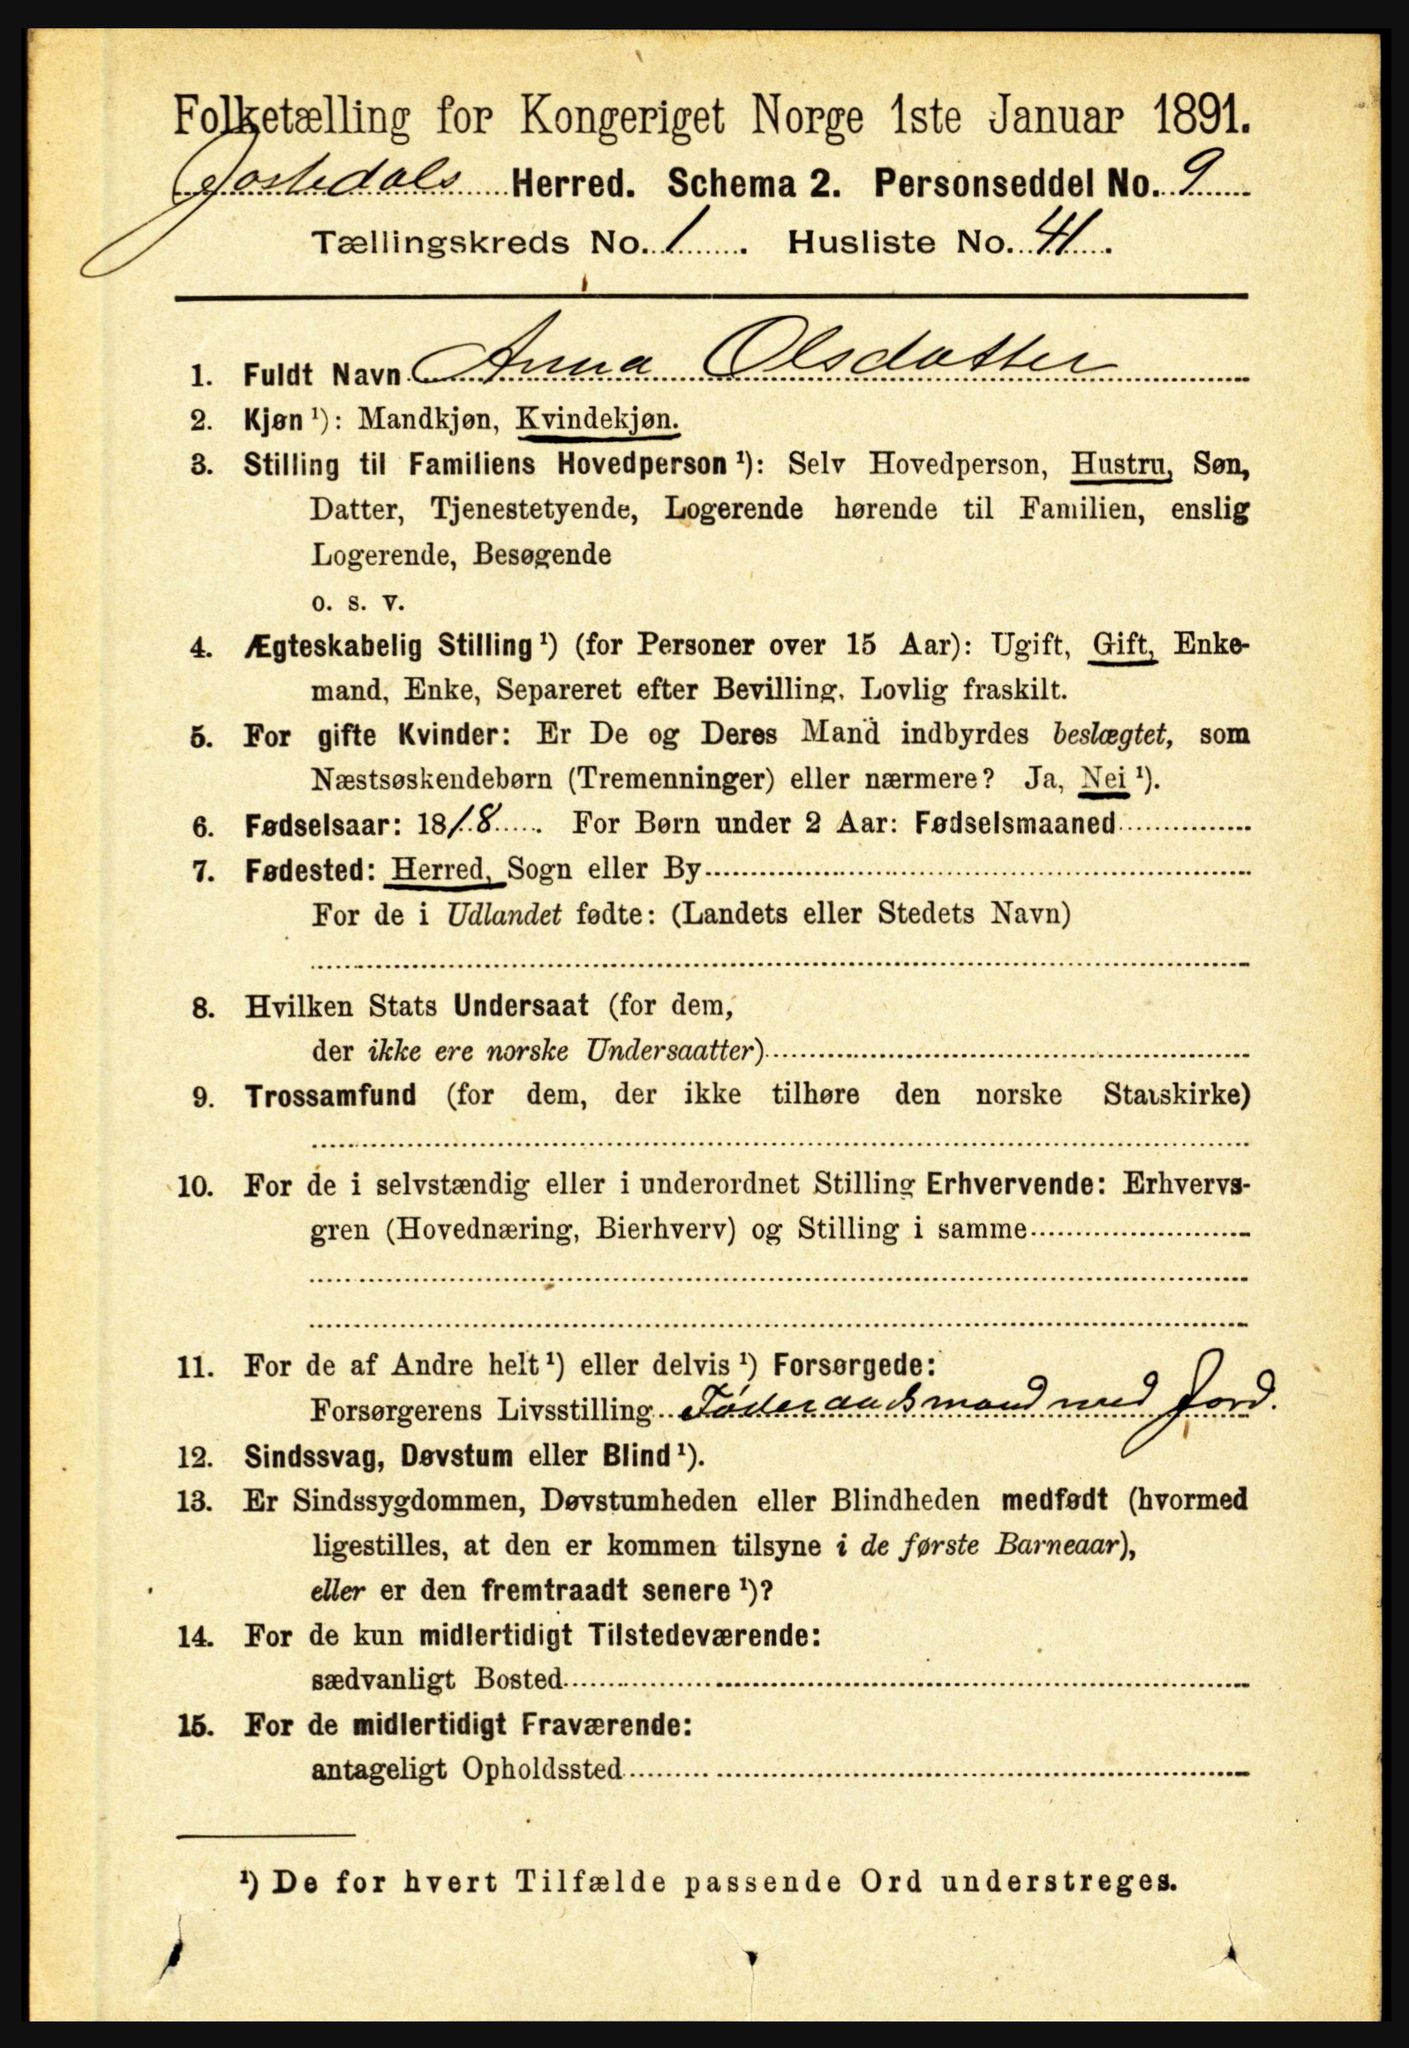 Folketælling for Kongeriget Norge 1ste Januar 1891.
Jostedals Herred. Schema 2. Personseddel No. 9
Tællingskreds No. 1. Husliste No. 41.
1. Fuldt Navn Anna Olsdatter
2. Kjøn ¹): Mandkjøn, Kvindekjøn.
3. Stilling til Familiens Hovedperson ¹): Selv Hovedperson, Hustru, Søn,
Datter, Tjenestetyende, Logerende hørende til Familien, enslig
Logerende, Besøgende
o. s. v.
4. Ægteskabelig Stilling ¹) (for Personer over 15 Aar): Ugift, Gift, Enke-
mand, Enke, Separeret efter Bevilling, Lovlig fraskilt.
5. For gifte Kvinder: Er De og Deres Mand indbyrdes beslægtet, som
Næstsøskendebørn (Tremenninger) eller nærmere? Ja, Nei ¹).
6. Fødselsaar: 1818. For Børn under 2 Aar: Fødselsmaaned
7. Fødested: Herred, Sogn eller By
For de i Udlandet fødte: (Landets eller Stedets Navn)
8. Hvilken Stats Undersaat (for dem,
der ikke ere norske Undersaatter)
9. Trossamfund (for dem, der ikke tilhøre den norske Statskirke)
10. For de i selvstændig eller i underordnet Stilling Erhvervende: Erhvervs-
gren (Hovednæring, Bierhverv) og Stilling i samme
11. For de af Andre helt ¹) eller delvis ¹) Forsørgede:
Forsørgerens Livsstilling Föderaadsmand med Jord.
12. Sindssvag, Døvstum eller Blind ¹).
13. Er Sindssygdommen, Døvstumheden eller Blindheden medfødt (hvormed
ligestilles, at den er kommen tilsyne i de første Barneaar),
eller er den fremtraadt senere ¹)?
14. For de kun midlertidigt Tilstedeværende:
sædvanligt Bosted
15. For de midlertidigt Fraværende:
antageligt Opholdssted
¹) De for hvert Tilfælde passende Ord understreges.